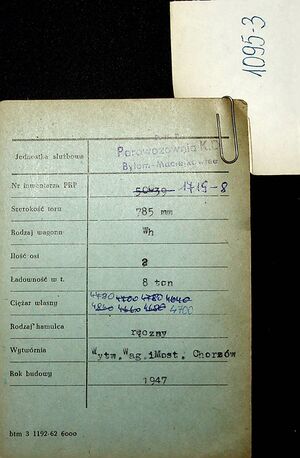 1095-3
Parowozownia K.D.
Jednostka służbowa
Bytom-Maciejkowice
Nr inwentarza PKP 50939 1715-8
Szerokość toru 785 mm
Rodzaj wagonu Wh
Ilość osi 2
Ładowność w t. 8 ton
Ciężar własny 4480 4700 4780 4640
4840 4660 4680 4700
Rodzaj hamulca ręczny
Wytwórnia Wytw.Wag.iMost. Chorzów
Rok budowy 1947
btm 3 1192-62 6000